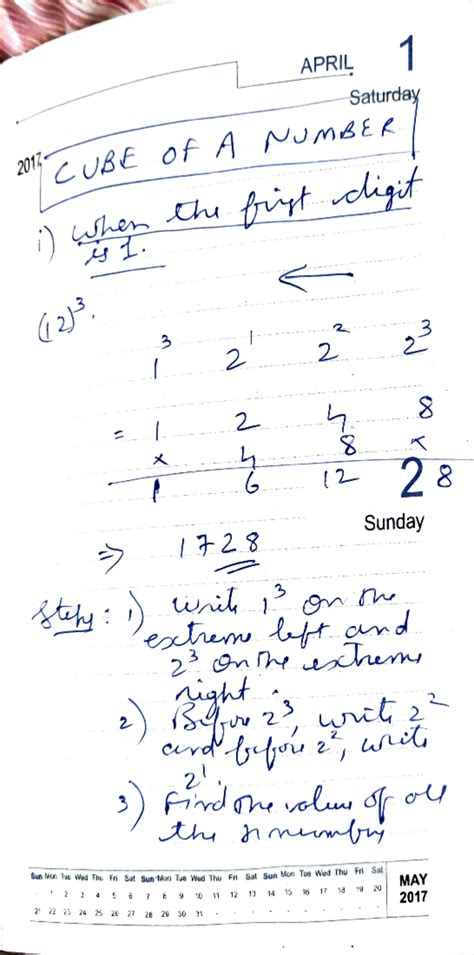 APRIL 1
Saturday
2017
CUBE OF A NUMBER
i) When the first digit
is 1.
←
(12)³.
1³ 2¹ 2² 2³
= 1 2 4 8
x 4 8 x
1 6 12 8
2
Sunday
⇒ 1728
Steps: 1) Write 1³ on the
extreme left and
2³ on the extreme
right.
2) Before 2³, write 2²
and before 2², write
2¹.
3) Find the value of all
the
Sun Mon Tue Wed Thu Fri Sat Sun Mon Tue Wed Thu Fri Sat Sun Mon Tue Wed Thu Fri Sat
· 1 2 3 4 5 6 7 8 9 10 11 12 13 14 15 16 17 18 19 20
21 22 23 24 25 26 27 28 29 30 31 · · · · · · · · · ·
MAY
2017